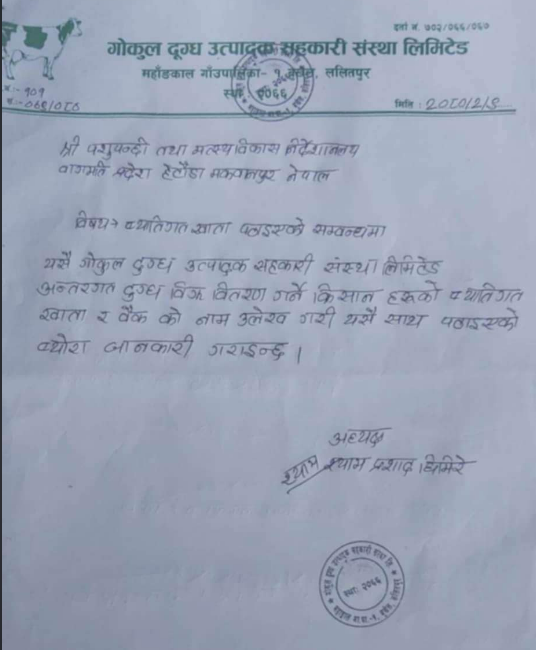 दर्ता नं. ७०२/०६६/०६७
गोकुल दूग्ध उत्पादक सहकारी संस्था लिमिटेड
महाँङकाल गाँउपालिका- १ ललितपुर
स्था २०६६
च.नं.:- १०१
०७९/०८०
मिति : २०८०/२/९
श्री पशुपन्छी तथा मत्स्य विकास निर्देशनालय
वागमती प्रदेश हेटौंडा मकवानपुर नेपाल
विषय → व्यतिगत खाता पठाइएको सम्वन्धमा
यसै गोकुल दुग्ध उत्पादक सहकारी संस्था लिमिटेड
अन्तरगत दुग्ध विक्रि वितरण गर्ने किसान हरुको व्यतिगत
खाता र वैंक को नाम उलेख गरी यसै साथ पठाइएको
व्योरा जानकारी गराइन्छ ।
अध्यक्ष
श्याम श्याम प्रशाद घिमिरे
स्था: २०६६